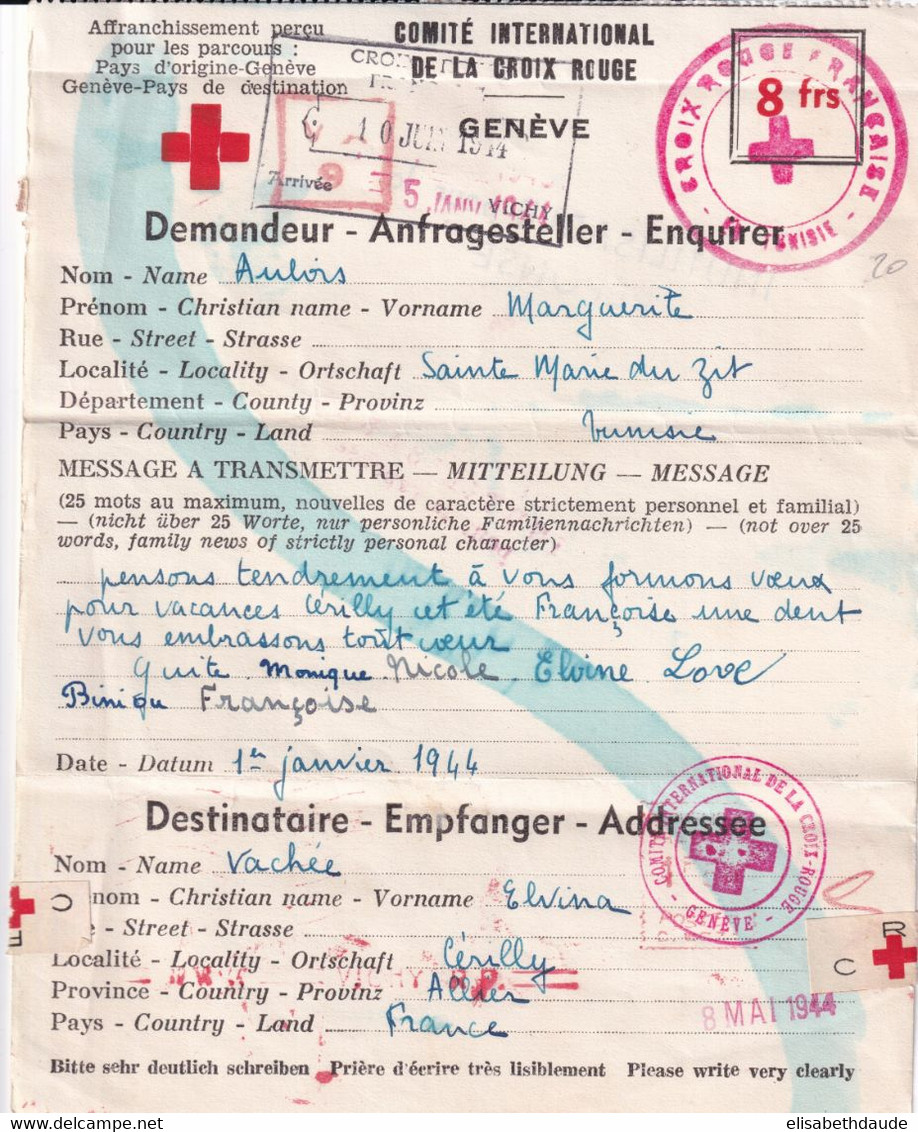 Affranchissement perçu
pour les parcours :
Pays d'origine-Genève
Genève-Pays de destination
COMITÉ INTERNATIONAL
DE LA CROIX ROUGE
GENÈVE
8 frs
CROIX ROUGE FRANÇAISE
TUNISIE
10 JUIN 1944
Arrivée
5 JANV
VICHY
20
Demandeur - Anfragesteller - Enquirer
Nom - Name Aulois
Prénom - Christian name - Vorname Marguerite
Rue - Street - Strasse
Localité - Locality - Ortschaft Sainte Marie du Zit
Département - County - Provinz
Pays - Country - Land Tunisie
MESSAGE A TRANSMETTRE — MITTEILUNG — MESSAGE
(25 mots au maximum, nouvelles de caractère strictement personnel et familial)
— (nicht über 25 Worte, nur personliche Familiennachrichten) — (not over 25
words, family news of strictly personal character)
pensons tendrement à vous formons vœux
pour vacances Cérilly cet été Françoise une dent
vous embrassons tout cœur
Guite Monique Nicole Elvine Love
Biniou Françoise
Date - Datum 1er janvier 1944
Destinataire - Empfanger - Addressee
COMITÉ INTERNATIONAL DE LA CROIX-ROUGE
- GENÈVE -
Nom - Name Vachée
nom - Christian name - Vorname Elvina
- Street - Strasse
Localité - Locality - Ortschaft Cérilly
Province - Country - Provinz Allier
Pays - Country - Land France
C
R
C
8 MAI 1944
Bitte sehr deutlich schreiben Prière d'écrire très lisiblement Please write very clearly
elisabethdaude